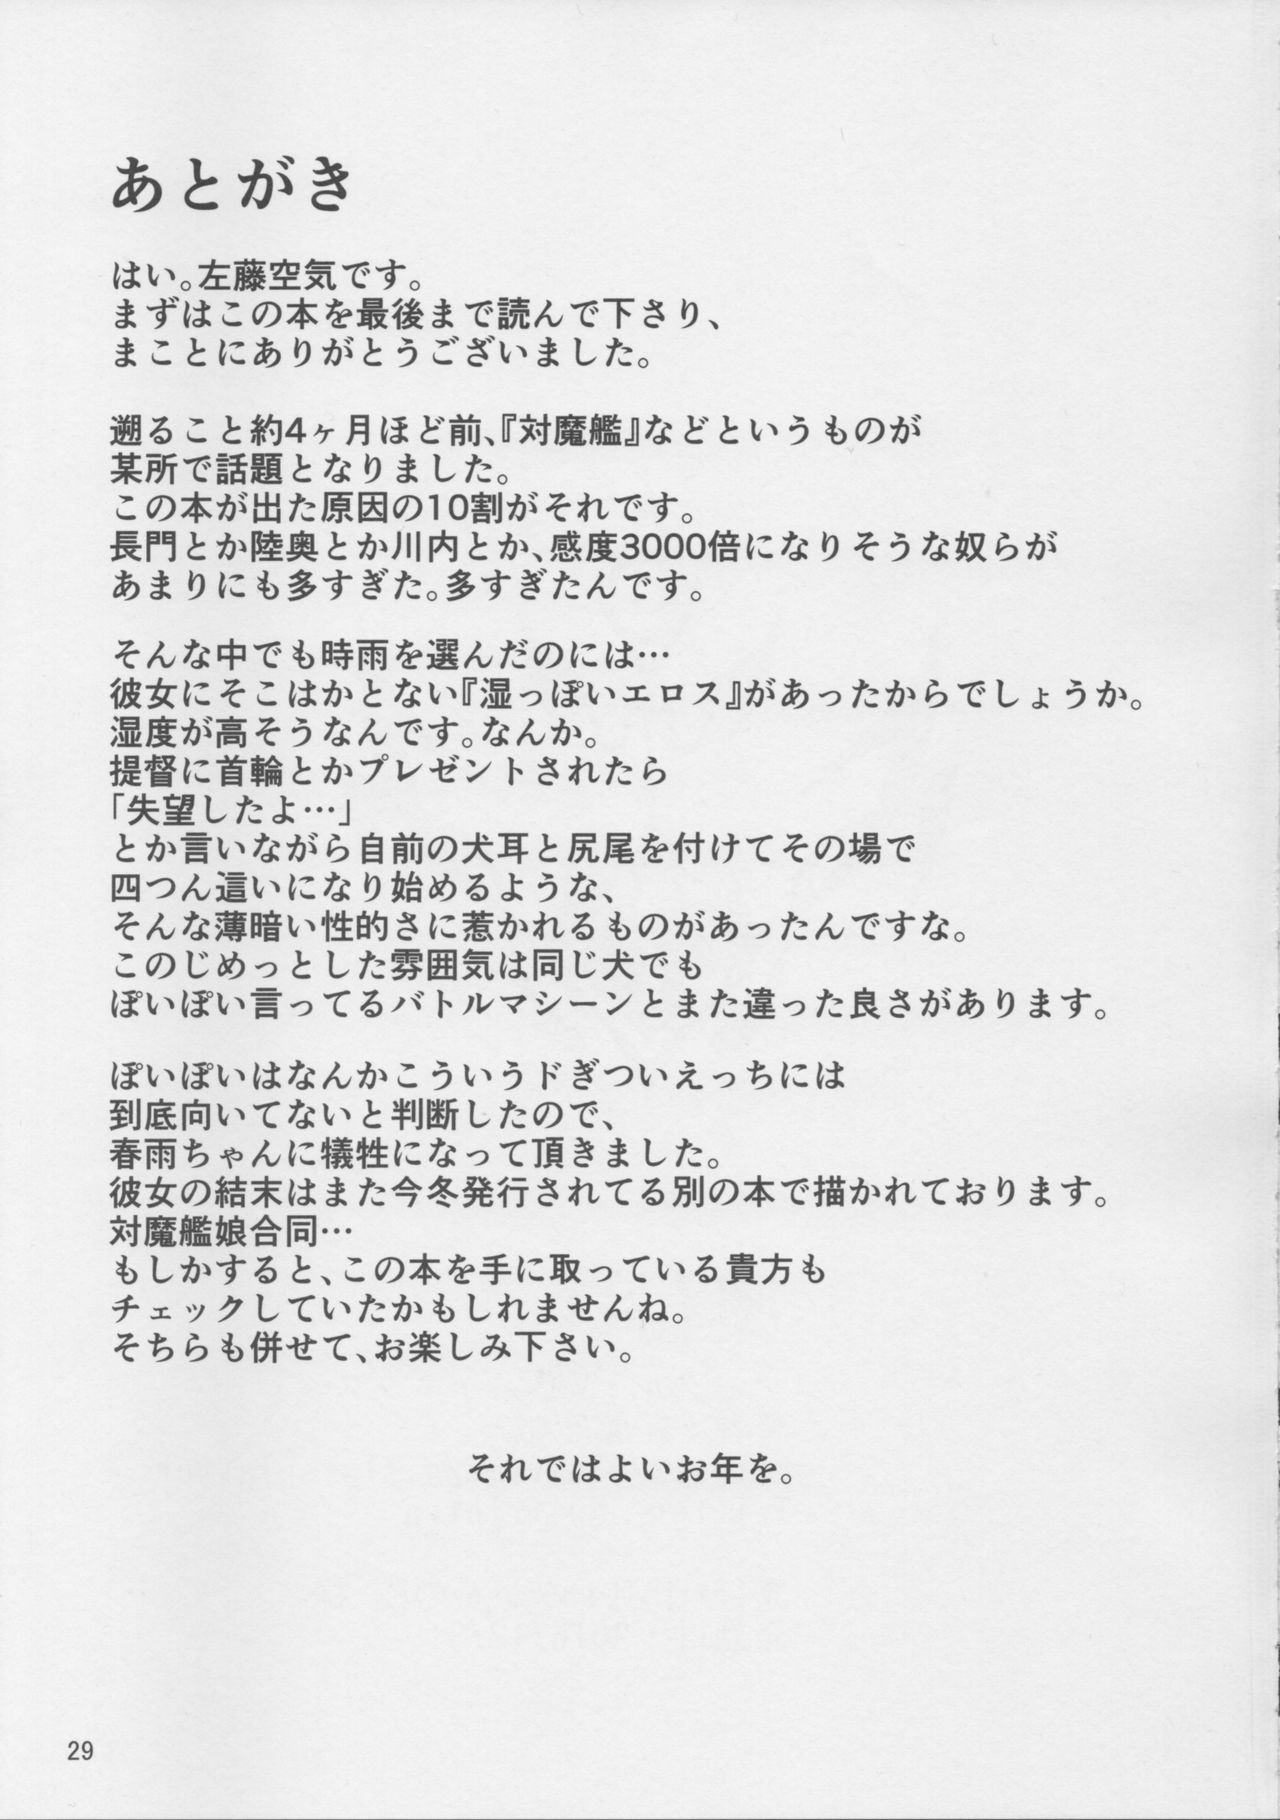 あとがき
はい。左藤空気です。
まずはこの本を最後まで読んで下さり、
まことにありがとうございました。
遡ること約4ヶ月ほど前、『対魔艦』などというものが
某所で話題となりました。
この本が出た原因の10割がそれです。
長門とか陸奥とか川内とか、感度3000倍になりそうな奴らが
あまりにも多すぎた。多すぎたんです。
そんな中でも時雨を選んだのには…
彼女にそこはかとない『湿っぽいエロス』があったからでしょうか。
湿度が高そうなんです。なんか。
提督に首輪とかプレゼントされたら
「失望したよ…」
とか言いながら自前の犬耳と尻尾を付けてその場で
四つん這いになり始めるような、
そんな薄暗い性的さに惹かれるものがあったんですな。
このじめっとした雰囲気は同じ犬でも
ぽいぽい言ってるバトルマシーンとまた違った良さがあります。
ぽいぽいはなんかこういうドぎついえっちには
到底向いてないと判断したので、
春雨ちゃんに犠牲になって頂きました。
彼女の結末はまた今冬発行されてる別の本で描かれております。
対魔艦娘合同…
もしかすると、この本を手に取っている貴方も
チェックしていたかもしれませんね。
そちらも併せて、お楽しみ下さい。
それではよいお年を。
29